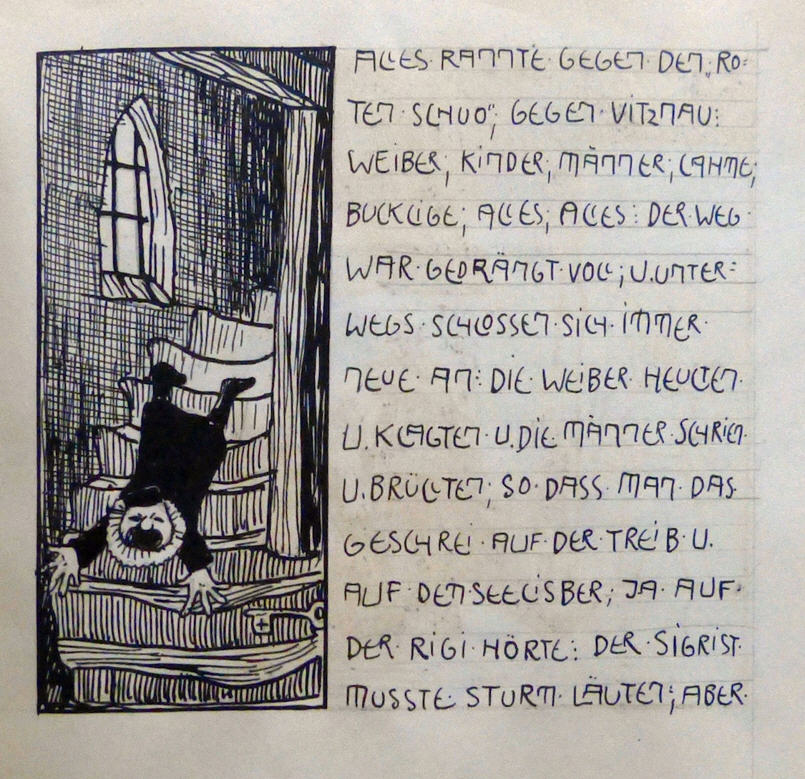 ALLES· RANNTE· GEGEN· DEN „RO=
TEN· SCHUO“; GEGEN· VITZNAU:
WEIBER, KINDER, MÄNNER; LAHME;
BUCKLIGE; ALLES; ALLES: DER· WEG·
WAR· GEDRÄNGT· VOLL; U. UNTER=
WEGS· SCHLOSSEN· SICH· IMMER·
NEUE· AN: DIE· WEIBER· HEULTEN·
U. KLAGTEN· U. DIE· MÄNNER· SCHRIEN·
U. BRÜLLTEN; SO· DASS· MAN· DAS·
GESCHREI· AUF· DER· TREIB· U.
AUF· DEN· SEELISBER; JA· AUF·
DER· RIGI· HÖRTE: DER· SIGRIST·
MUSSTE· STURM· LÄUTEN; ABER·